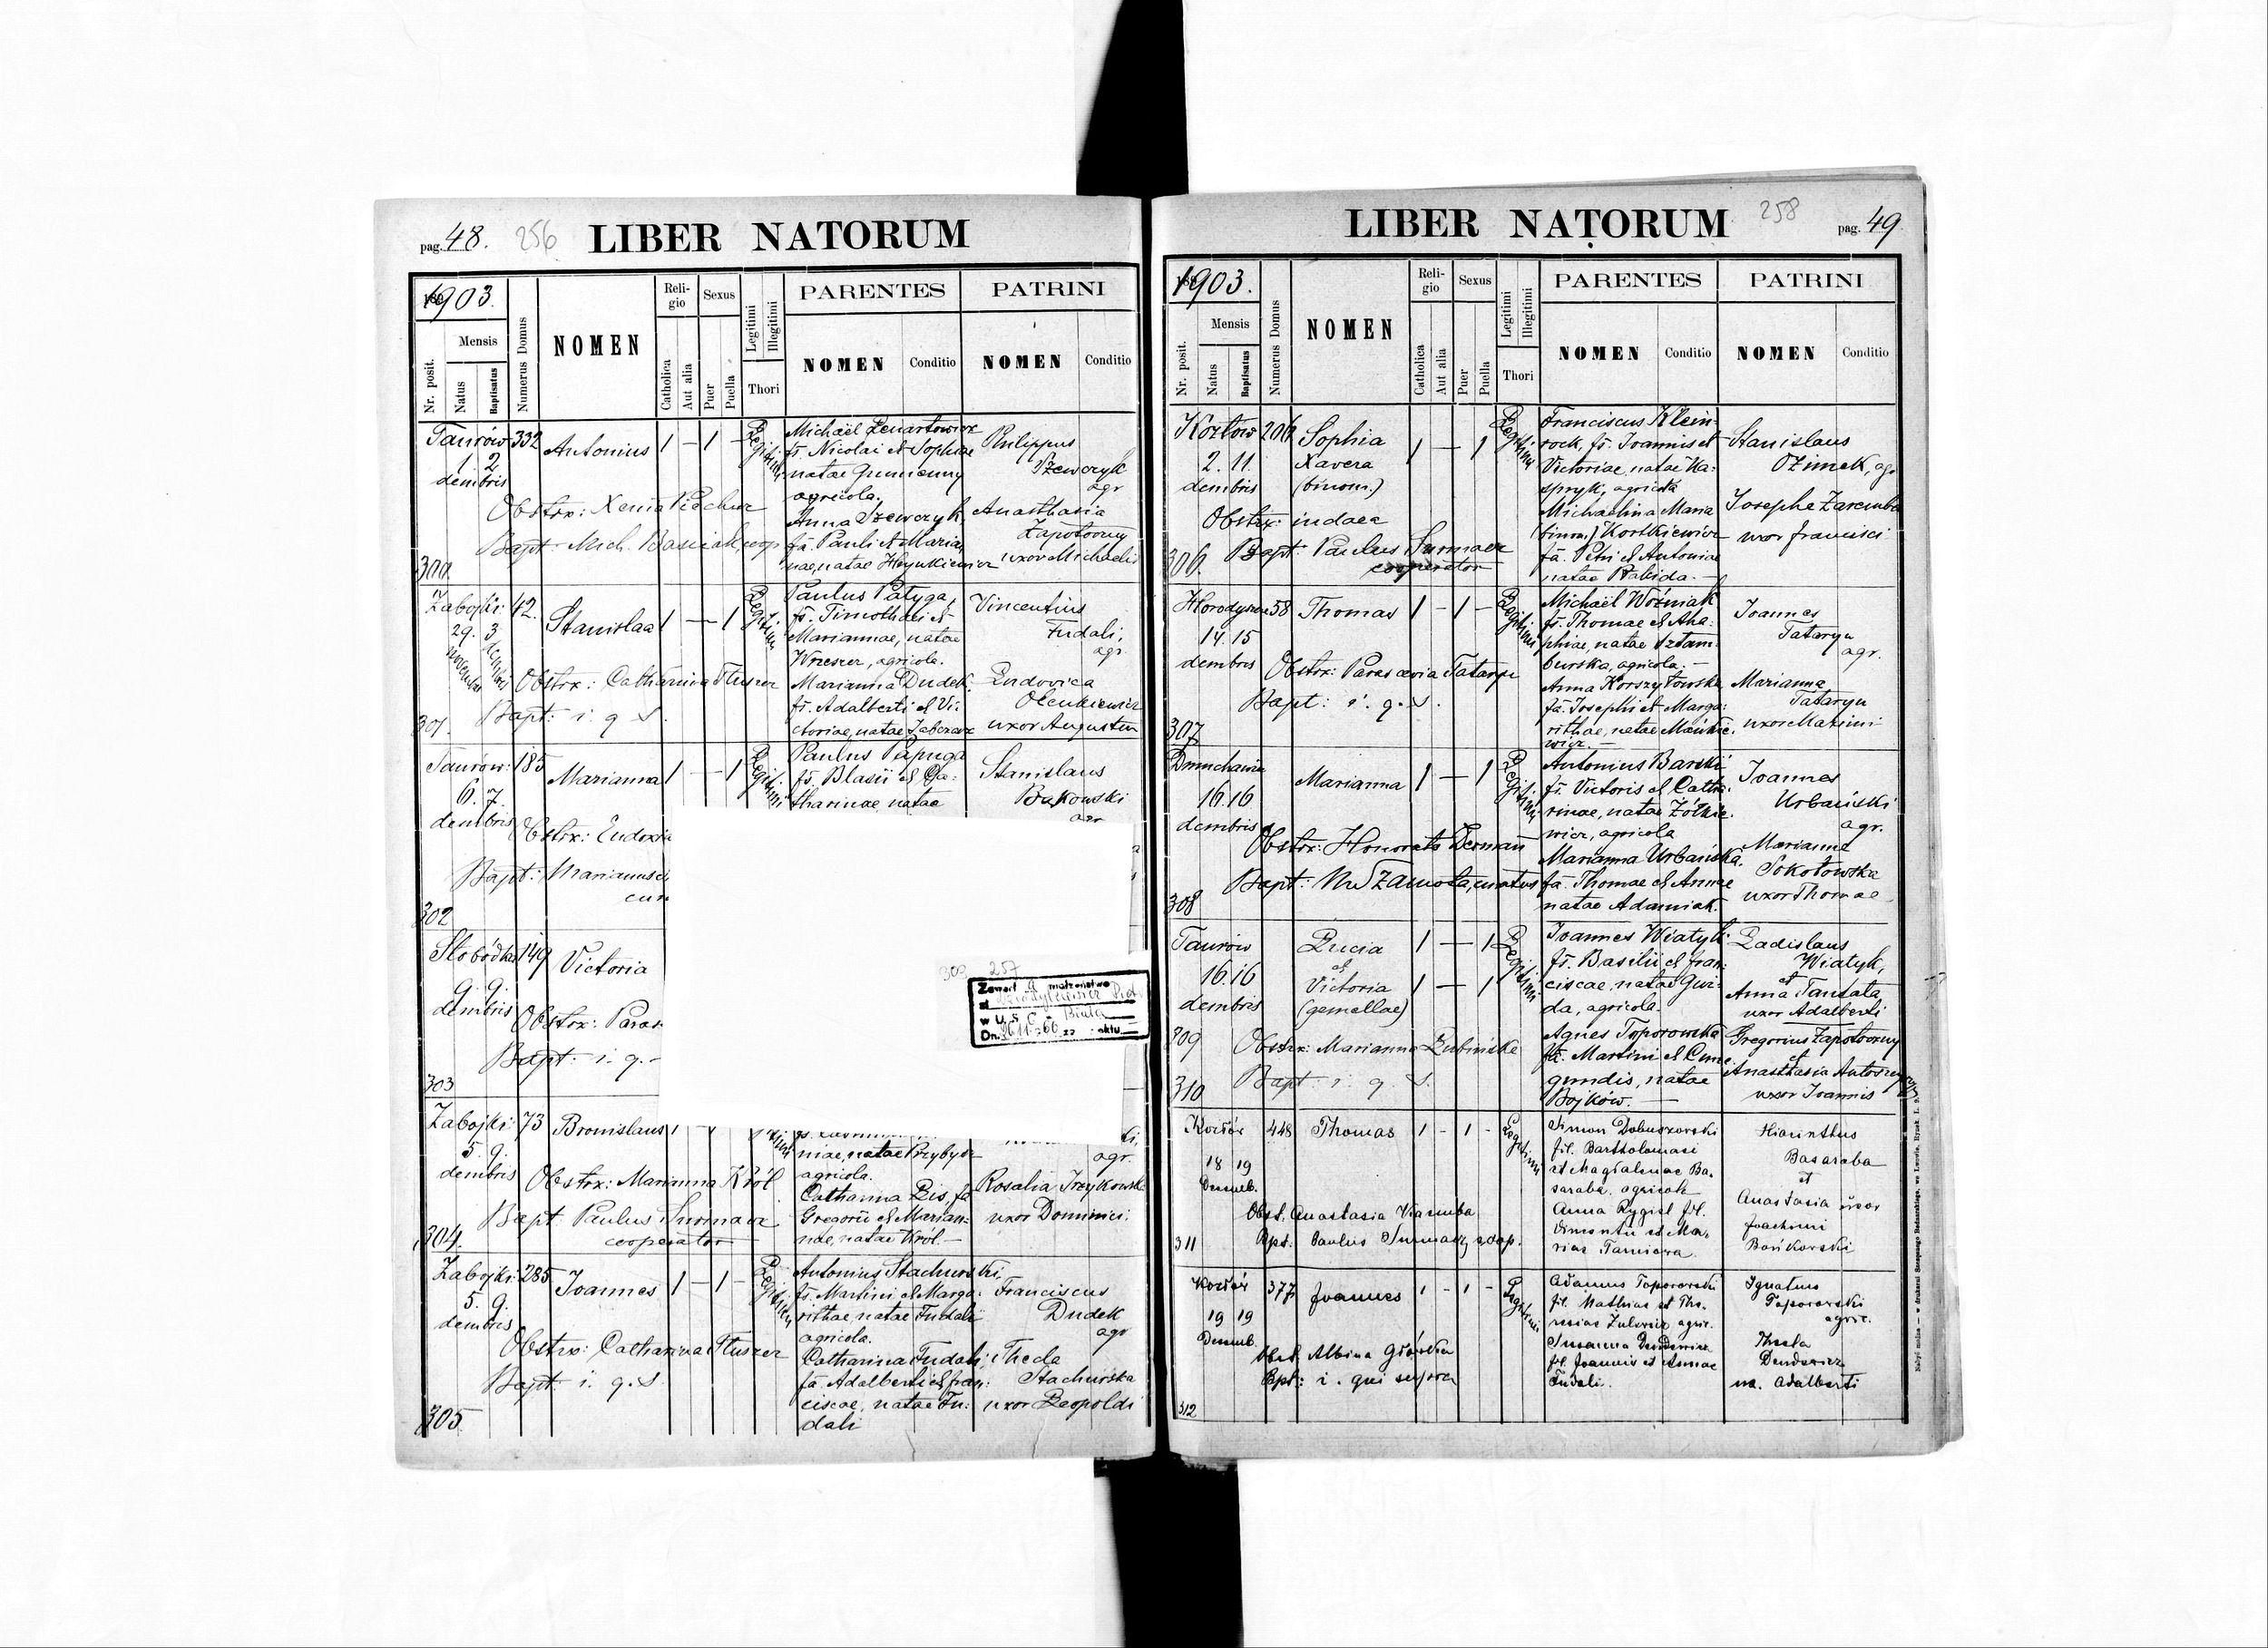 pag. 48. 256 LIBER NATORUM
1903.
Nr. posit.
Mensis
Natus
Baptisatus
Numerus Domus
NOMEN
Religio
Catholica
Aut alia
Sexus
Puer
Puella
Legitimi
Illegitimi
Thori
PARENTES
NOMEN
Conditio
PATRINI
NOMEN
Conditio
Taurów 332 Antonius 1 — 1 — Legitimi
1. 2.
dembris
Obstrx: Xenia
Bapt: Mich. Basiak, coop
300.
Michaël Lenartowicz
fs. Nicolai et Sophiae
natae Gumienny
agricola.
Anna Szewczyk
fa. Pauli et Marian
nae, natae Hrynkiewicz
Philippus
Szewczyk
agr
Anasthasia
Zapotoczny
uxor Michaelis
Zabojki 42. Stanislaa 1 — 1 Legitimi
29. 3
novembris dembris
Obstrx: Catharina Tluszcz
Bapt: i. q. S.
301.
Paulus Patyga,
fs. Timothaei et
Mariannae, natae
Wrzeszcz, agricola.
Marianna Dudek
fa. Adalberti et Vic
toriae, natae
Vincentius
Fudali,
agr.
Ludovica
Olenkiewicz
uxor Augustini
Taurów: 185 Marianna 1 — 1 Legitimi
6. 7.
dembris
Obstrx: Eudoxia
Bapt: Marianus
302
Paulus Papuga
fs. Blasii et Ca:
tharinae natae
Stanislaus
Bukowski
agr
Słobódka 149 Victoria
9. 9.
dembris
Obstrx: Paras
Bapt: i. q. -
303
303 257
Zawarł a małżeństwo
w U. S. C.
Dn. aktu
Zabojki 73 Bronislaus 1
5. 9.
dembris
Obstrx: Marianna Król
Bapt Paulus Surmacz
cooperator
304.
niae, natae Przybysz
agricola.
Catharina Lis, fa
Gregorii et Marian
nae, natae Król. —
agr.
Rosalia
uxor Dominici.
Zabojki 285 Joannes 1 — 1 — Legitimi
5. 9.
dembris
Obstrx: Catharina Tluszcz
Bapt: i. q. S.
305.
Antonius Stachurski,
fs. Martini et Marga:
rithae, natae Fudali
agricola.
Catharina Fudali,
fa. Adalberti et Fran:
ciscae, natae Fu:
dali
Franciscus
Dudek
agr
Thecla
Stachurska
uxor Leopoldi
LIBER NATORUM 258 pag. 49
1903.
Nr. posit.
Mensis
Natus
Baptisatus
Numerus Domus
NOMEN
Religio
Catholica
Aut alia
Sexus
Puer
Puella
Legitimi
Illegitimi
Thori
PARENTES
NOMEN
Conditio
PATRINI
NOMEN
Conditio
Kozłow 206 Sophia
Xavera
(binom.) 1 — 1 Legitimi
2. 11.
dembris
Obstrx: iudaea
Bapt: Paulus Surmacz
cooperator
306.
Franciscus Klein
rock, fs. Joannis et
Victoriae, natae Ka:
spryk, agricola
Michaelina Maria
(binom.) Kortkiewicz
fa. Petri et Antoniae
natae Rakida. —
Stanislaus
Ozimek, agr
Josepha Zaremba
uxor Francisci
Horodyszcze 58 Thomas 1 - 1 - Legitimi
14. 15
dembris
Obstrx: Parascevia Tataryn
Bapt: i. q. S.
307
Michaël Woźniak
fs. Thomae et Aga:
phiae, natae Sztam
burska, agricola. —
Anna Korszyłowska
fa. Josephi et Marga:
rithae, natae
wicz. —
Joannes
Tataryn
agr.
Marianna
Tataryn
uxor Maximi
Dmuchawiec Marianna 1 — 1 Legitimi
16. 16
dembris
Obstrx: Honorata Derman
Bapt:
308
Antonius Barski
fs. Victoris et Catha:
rinae, natae Żółkie:
wicz, agricola
Marianna Urbańska
fa. Thomae et Annae
natae Adamiak.
Joannes
Urbański
agr.
Marianna
Sokołowska
uxor Thomae
Taurów Lucia 1 — 1 Legitimi
et
16. 16 Victoria 1 — 1
dembris (gemellae)
309 Obstrx: Marianna Lubińska
310 Bapt: i. q. S.
Joannes Wiatyk
fs. Basilii et Fran:
ciscae, natae Gwi:
zda, agricola.
Agnes Toporowska
fa. Martini et Cune
gundis, natae
Bojków. —
Ladislaus
Wiatyk,
et
Anna Tantała
uxor Adalberti
Gregorius Zapotoczny
et
Anasthasia
uxor Joannis
Kozłów 448 Thomas 1 - 1 - Legitimi
18 19
Decemb.
Obst. Anastasia
Bpt. Paulus Surmacz coop.
311
Simon
fil. Bartholomaei
et Magdalenae Ba-
saraba, agricola
Anna Rygiel fil.
et Ma-
riae
Hiacinthus
Basaraba
et
Anastasia uxor
Joachimi
Bońkowski
Kozłów 377 Joannes 1 - 1 - Legitimi
19 19
Decemb.
Obst. Albina Głowska
Bpt: i. qui supra
312
Adamus Toporowski
fil. Mathiae et The-
resiae agric.
Susanna Dendewicz
fil. Joannis et Annae
Fudali.
Ignatius
Toporowski
agric.
Thecla
Dendewicz
ux. Adalberti